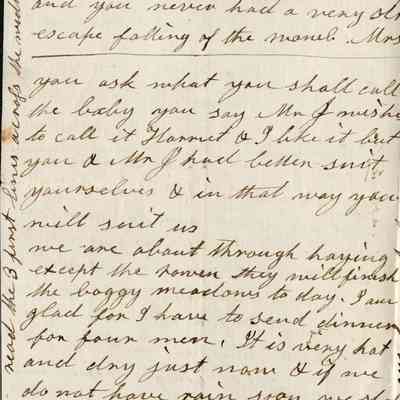 and you never had a very
escape falling of the womb. Mrs
you ask what you shall call
the baby you say Mr J wishe
to call it Harriet & I like it but
you & Mr J had better suit
yourselves & in that way you
will suit us
we are about through haying
except the rowen they will finish
the boggy meadows to day. I am
glad for I have to send dinner
for four men. It is very hot
and dry just now & if we
do not have rain soon we
read the 3 first lines across the